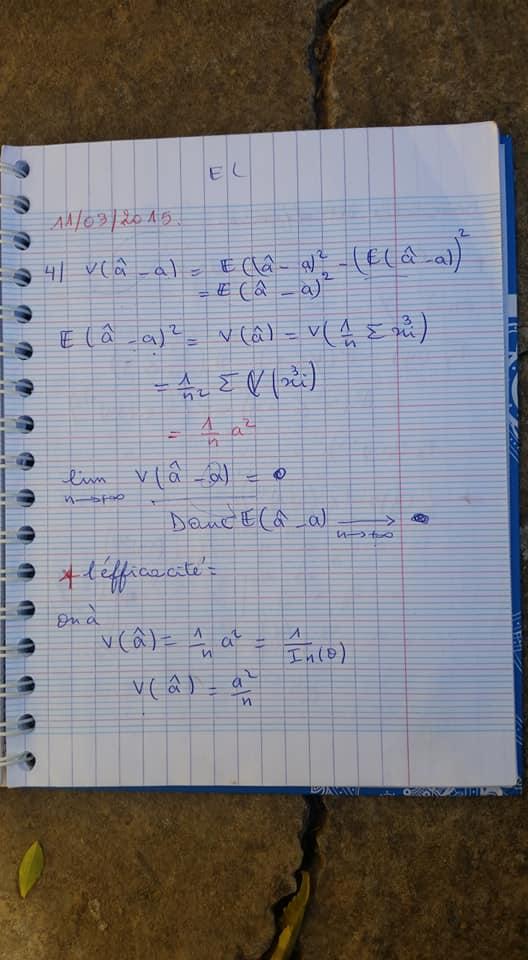 E(
11/03/2015.
4) V(â - a) = E((â - a)² - (E(â - a))²
= E(â - a)²
E(â - a)² = V(â) = V(1/n Σ xi³)
= 1/n² Σ V(xi³)
= 1/n a²
lim n→+∞ V(â - a) = 0
Donc E(â - a) → n→+∞ 0
* l'éfficacité =
on à
V(â) = 1/n a² = 1/In(θ)
V(â) = a²/n